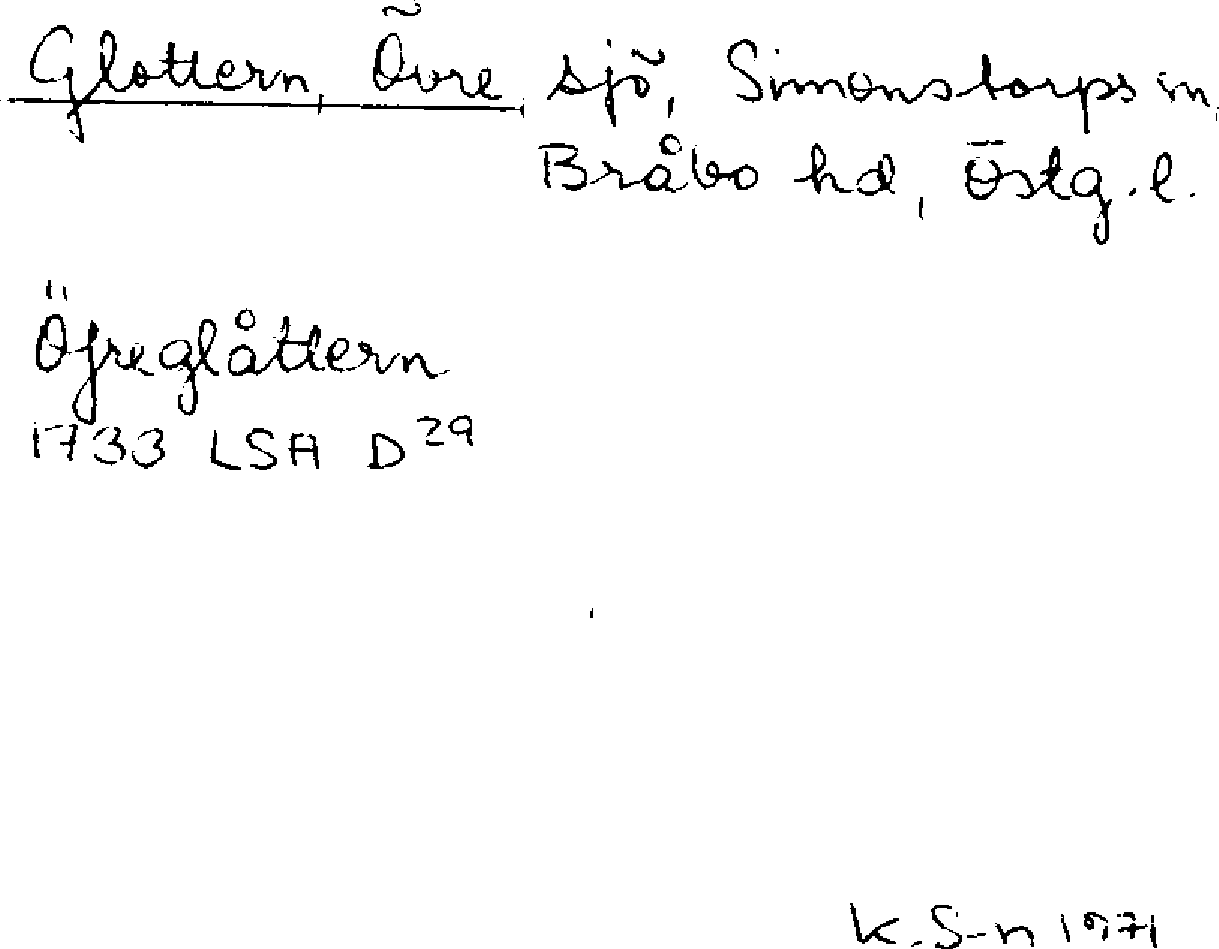 Glottern, Övre sjö, Simonstorps sn,
Bråbo hd, Östg. l.
Öfreglåttern
1733 LSA D 29
K. S-n 1971